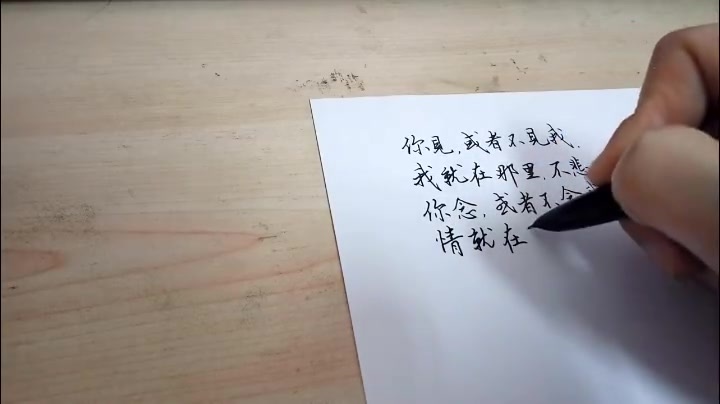 你见,或者不见我,
我就在那里,不悲
你念,或者不念
情就在